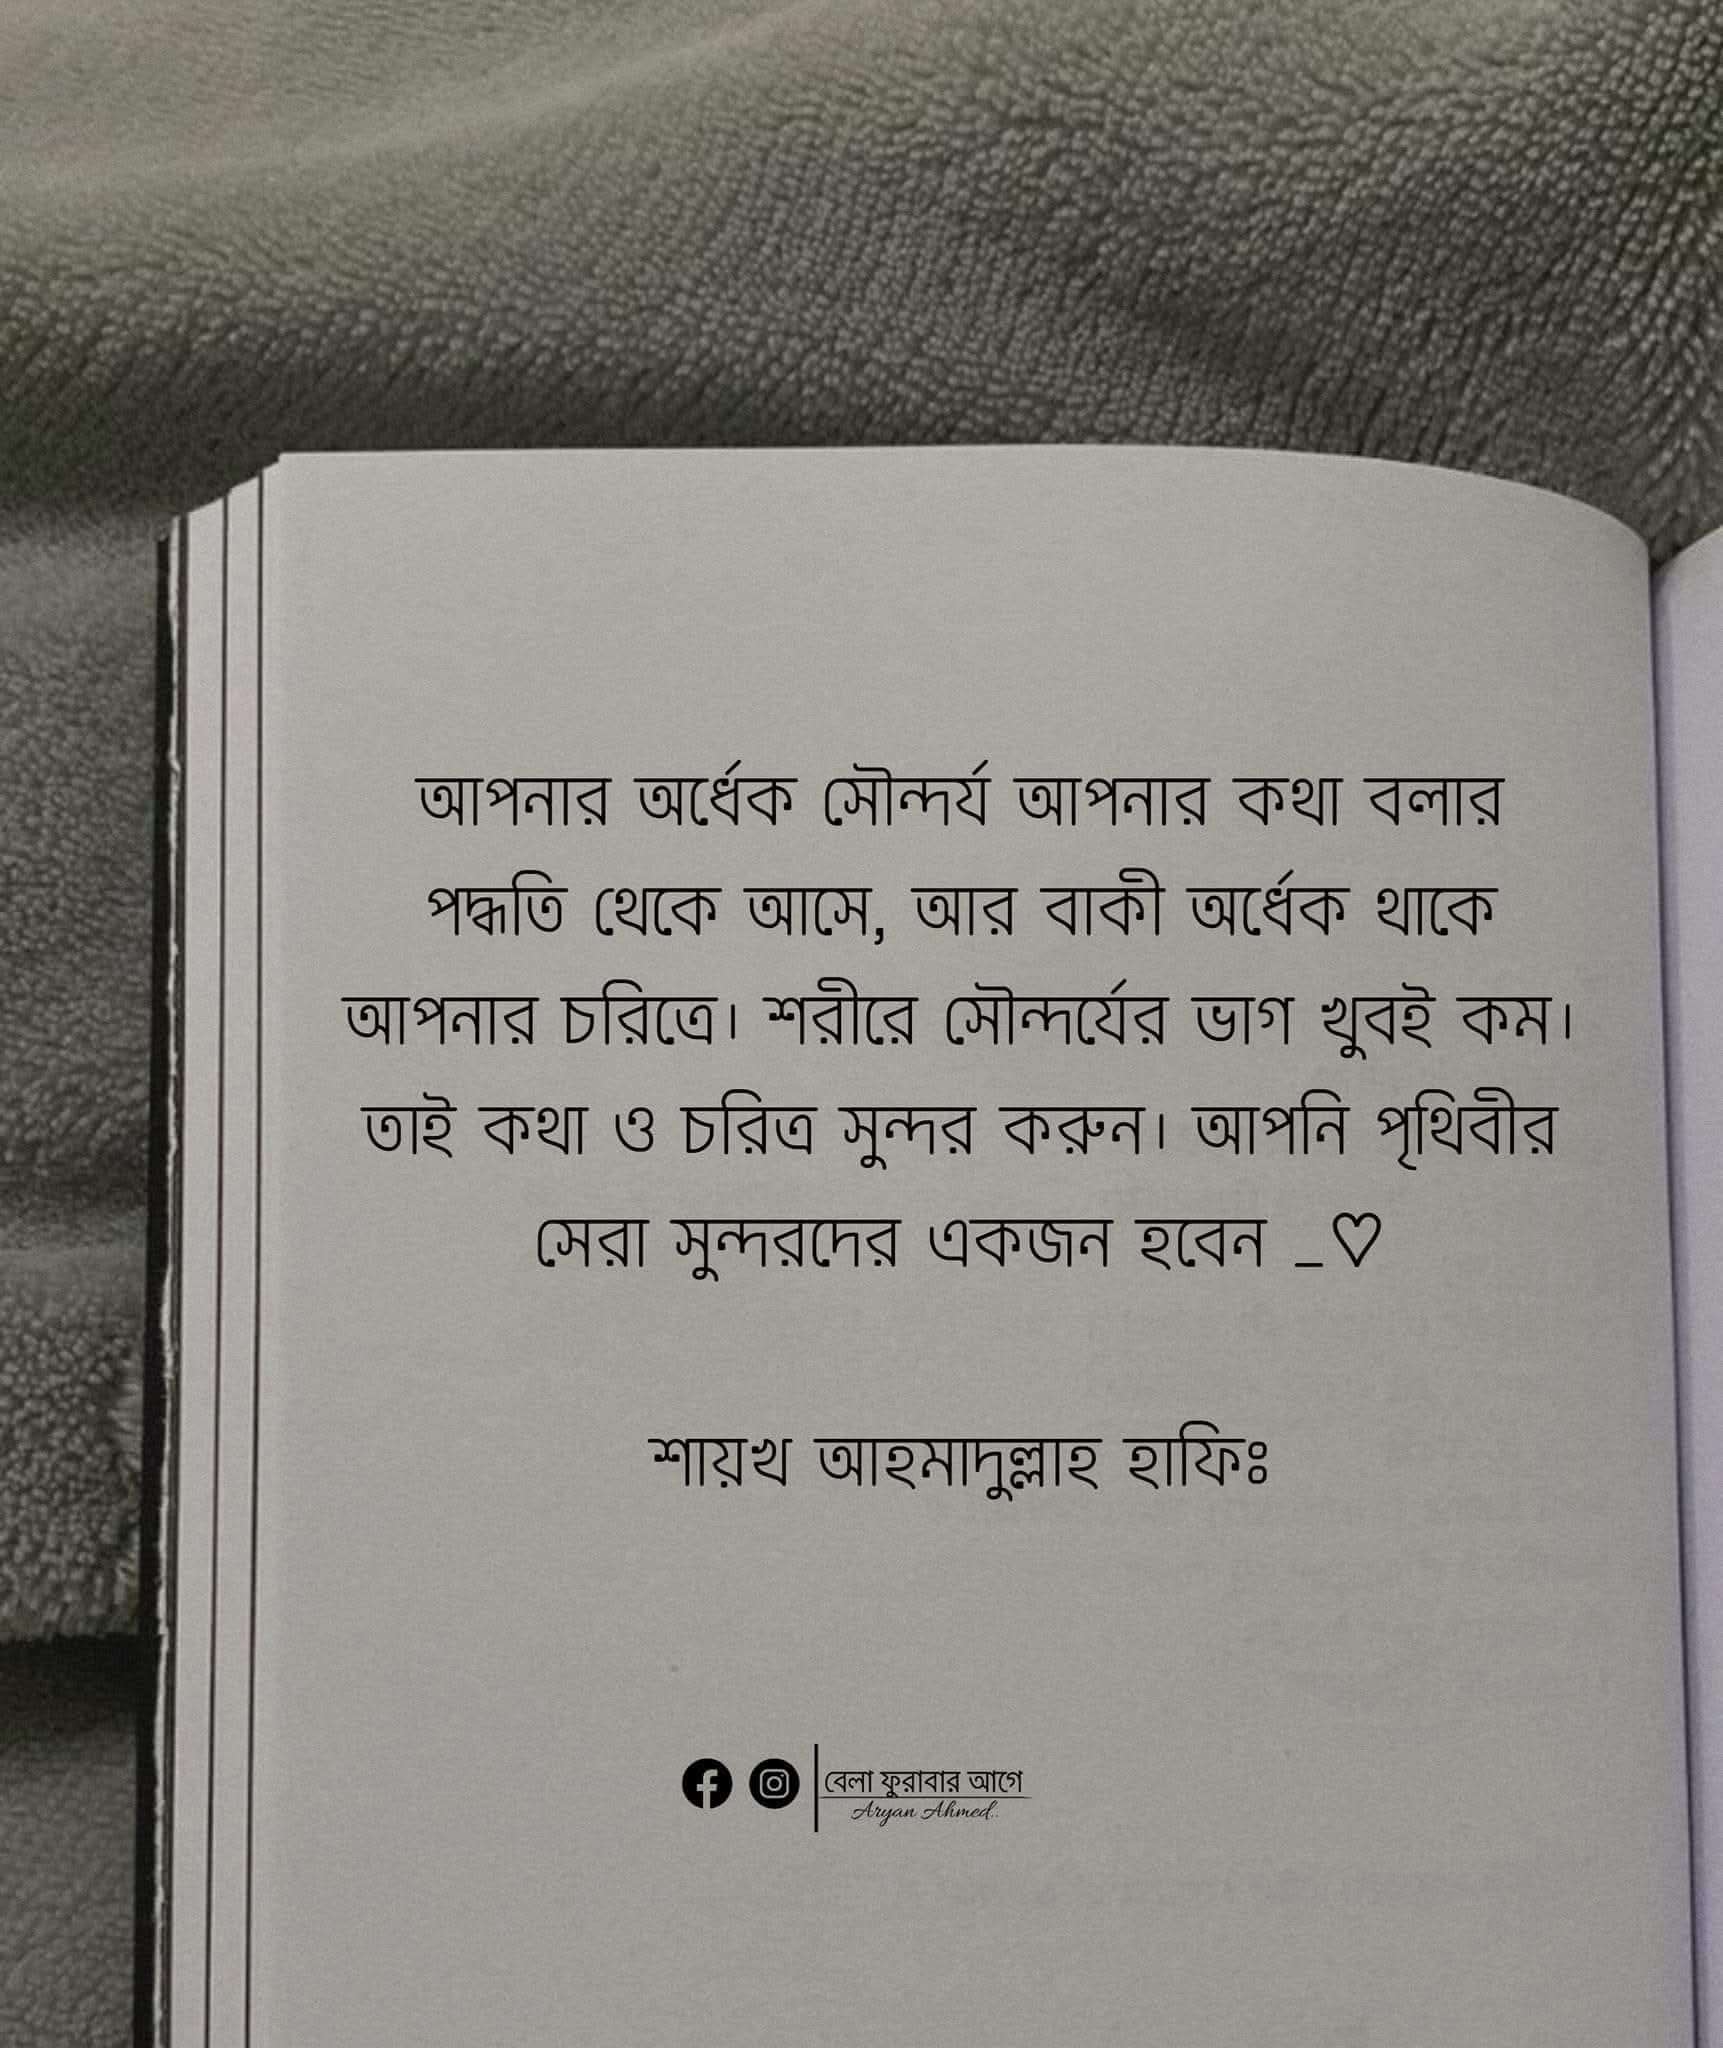 আপনার অর্ধেক সৌন্দর্য আপনার কথা বলার
পদ্ধতি থেকে আসে, আর বাকী অর্ধেক থাকে
আপনার চরিত্রে। শরীরে সৌন্দর্যের ভাগ খুবই কম।
তাই কথা ও চরিত্র সুন্দর করুন। আপনি পৃথিবীর
সেরা সুন্দরদের একজন হবেন _♡
শায়খ আহমাদুল্লাহ হাফিঃ
বেলা ফুরাবার আগে
Aryan Ahmed..